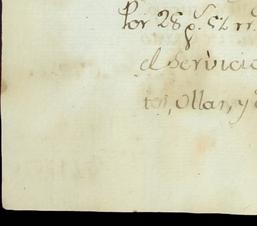 Por 28 p.s 5½ rr.
el servicio
tos, ollar, y